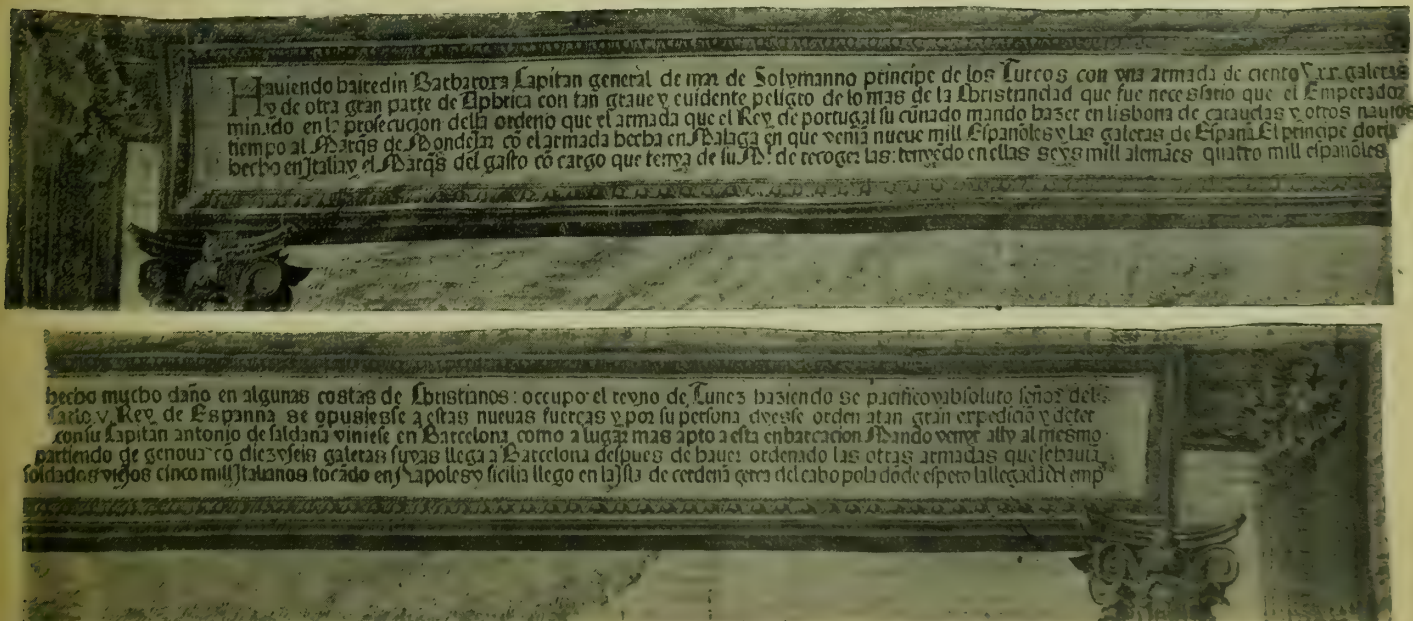 Hauiendo hairedin Barbaroxa Capitan general de mar de Solymanno principe de los Turcos con vna armada de ciento y.xx. galeras
y de otra gran parte de Aphrica con tan graue y euidente peligro de lo mas de la Christiandad que fue necessario que el Emperador
minãdo en la prosecucion della ordeno que el armada que el Rey de portugal su cuñado mando hazer en lisbona de carauelas y otros nauios
tiempo al Marqs de Mondejar cõ el armada hecha en Malaga en que veniã nueue mill Españoles y las galeras de España El principe doria
hecho en Italia y el Marqs del gasto cõ cargo que tenya de su M: de recoger las: tenyẽdo en ellas seys mill alemães quatro mill españoles
hecho mucho daño en algunas costas de Christianos: occupo el reyno de Tunez haziendo se pacifico y absoluto señor del
sario y Rey de Espanna se opusiesse a estas nueuas fuerças y por su persona dyesse orden a tan gran expediciõ y deter
con su Capitan antonio de saldaña viniese en Barcelona como a lugar mas apto a esta enbarcacion Mando venyr ally al mesmo
partiendo de genoua cõ diez y seis galeras suyas llega a Barcelona despues de hauer ordenado las otras armadas que se hauia
soldados viejos cinco mill Italianos tocãdo en Napoles y sicilia llego en la Jsla de cerdeña çerca del cabo pola dõde espero la llegada del emp